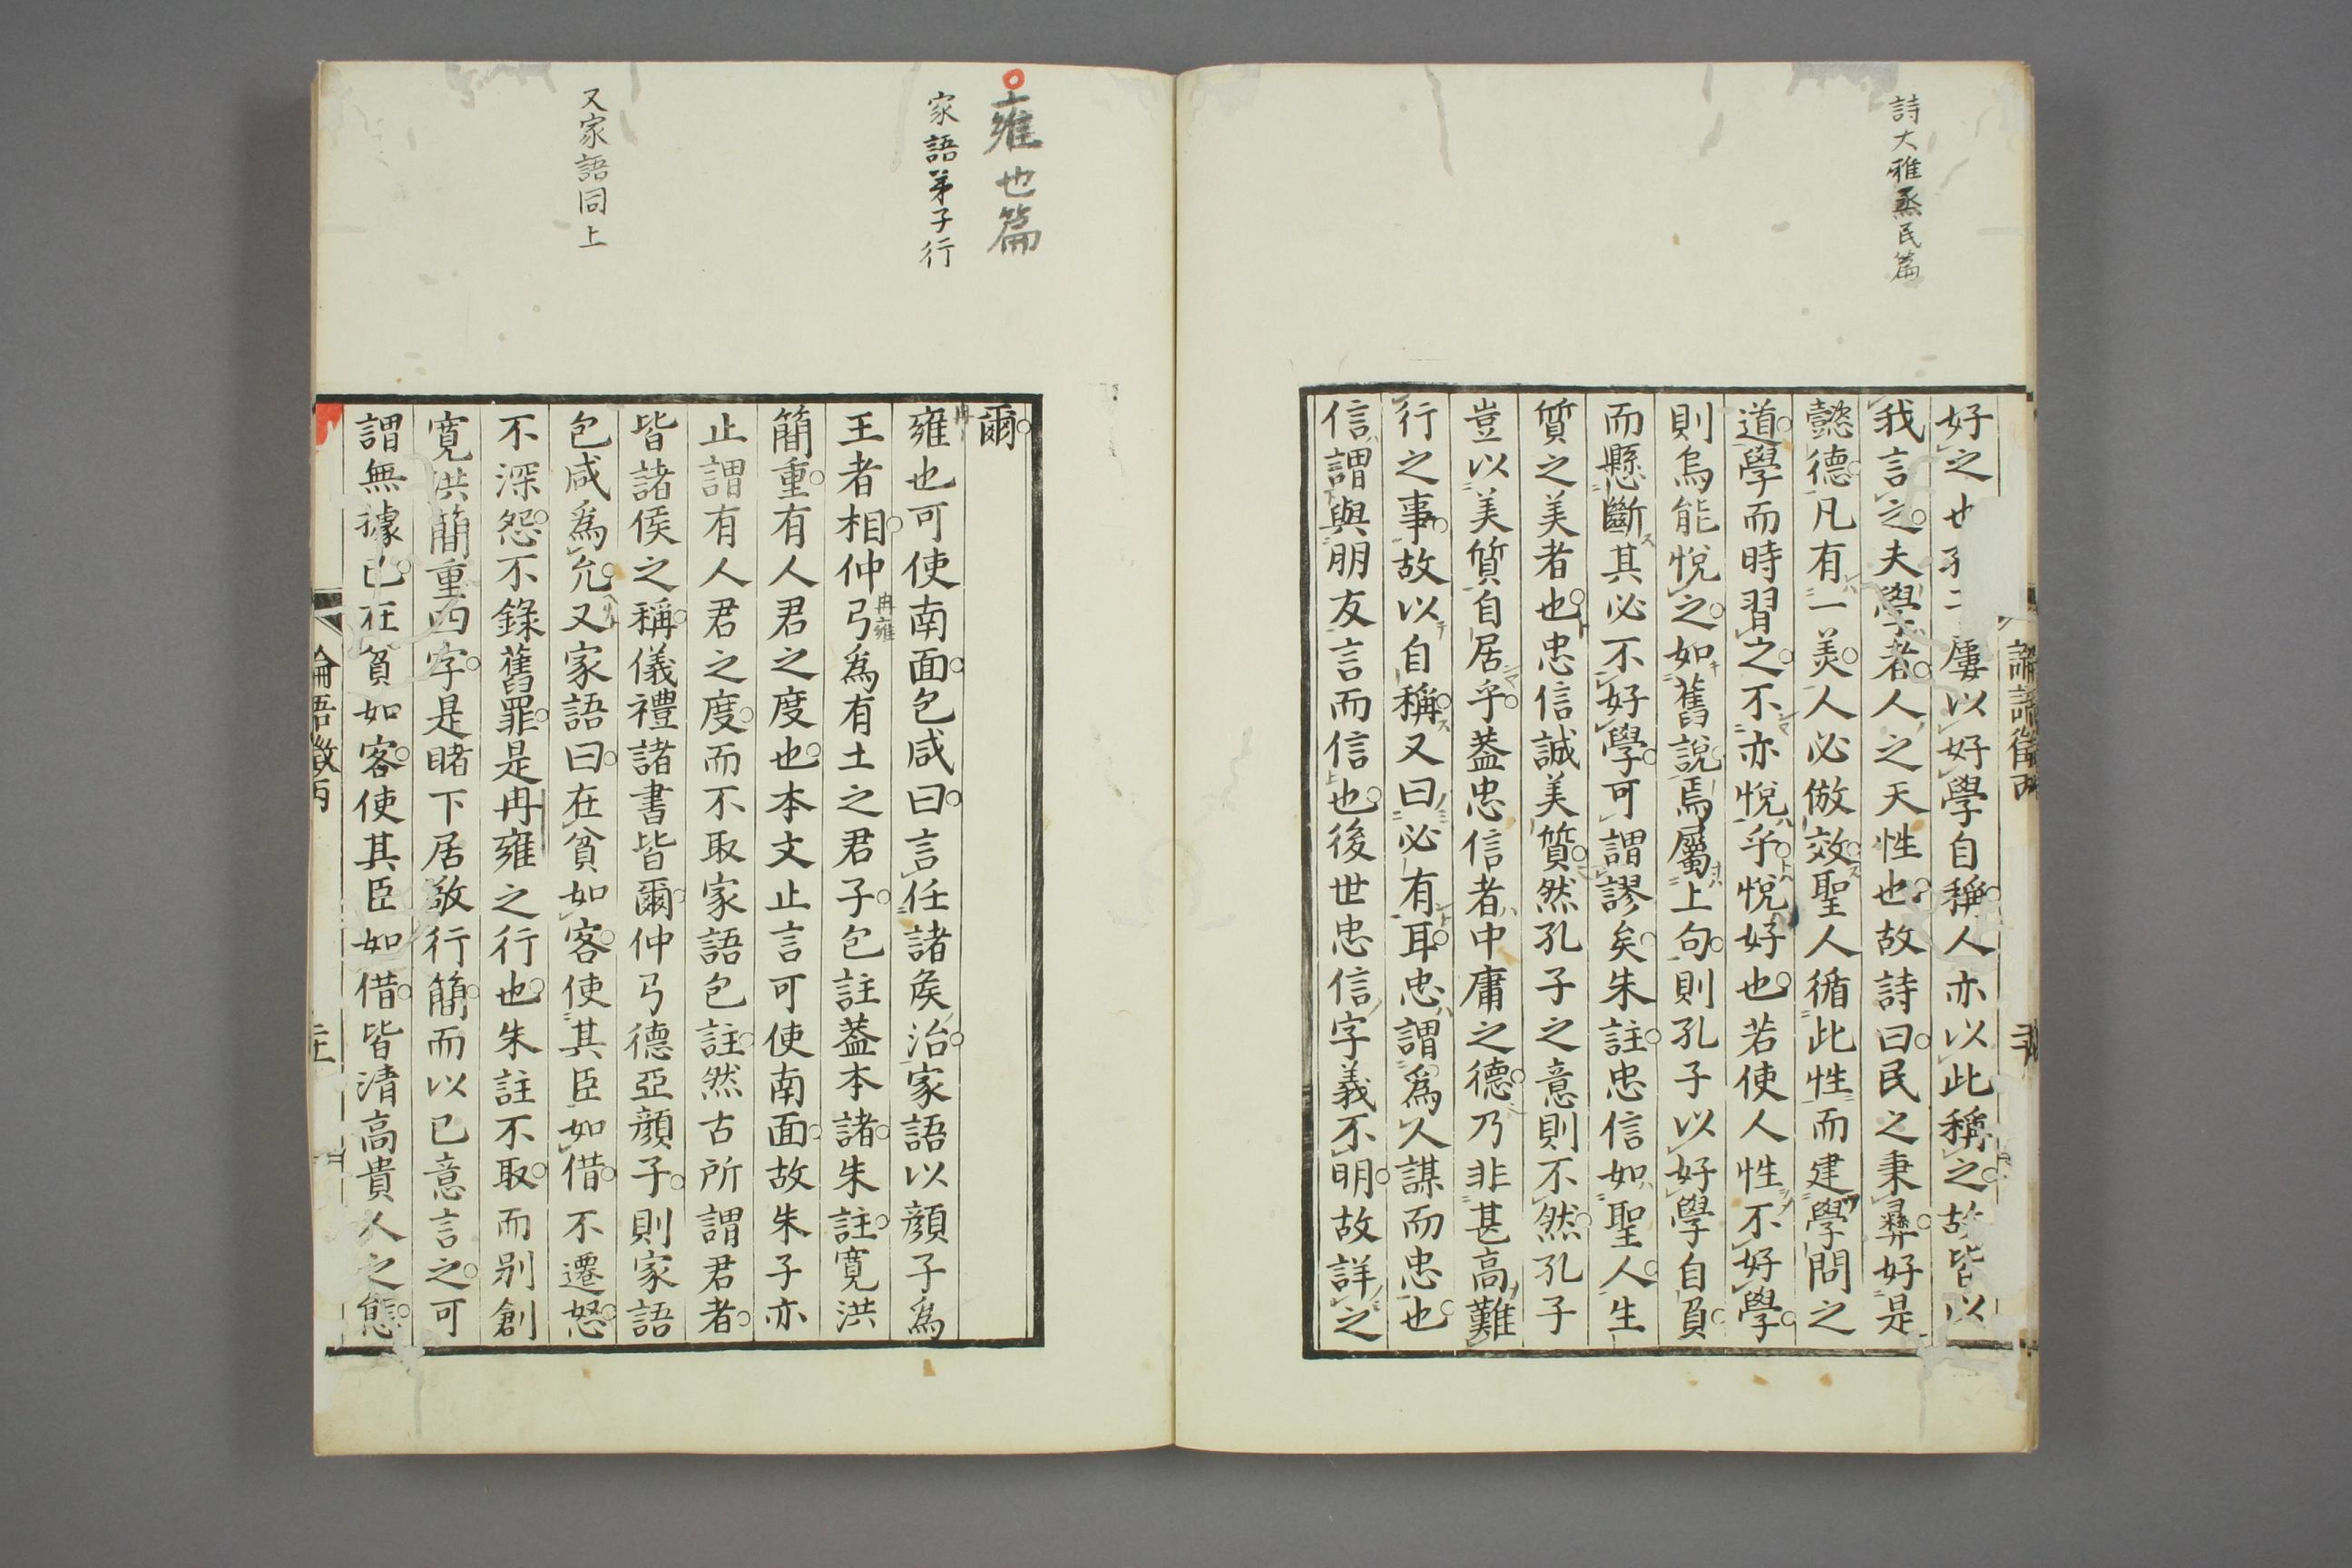 詩大雅烝民篇
好之也孔子屢以好學自稱人亦以此稱之故皆以
我言之夫學者人之天性也故詩曰民之秉彞好是
懿德凡有一美人必倣效聖人循此性而建學問之
道學而時習之不亦悅乎悅好也若使人性不好學
則烏能悅之如舊說焉屬上句則孔子以好學自負
而懸斷其必不好學可謂謬矣朱註忠信如聖人生
質之美者也忠信誠美質然孔子之意則不然孔子
豈以美質自居乎葢忠信者中庸之德乃非甚高難
行之事故以自稱又曰必有耳忠謂爲人謀而忠也
信謂與朋友言而信也後世忠信字義不明故詳之
雍也篇
家語弟子行
又家語同上
爾
雍也可使南面包咸曰言任諸矦治家語以顔子爲
王者相仲弓爲有土之君子包註葢本諸朱註寛洪
簡重有人君之度也本文止言可使南面故朱子亦
止謂有人君之度而不取家語包註然古所謂君者
皆諸侯之稱儀禮諸書皆爾仲弓德亞顔子則家語
包咸爲允又家語曰在貧如客使其臣如借不遷怒
不深怨不錄舊罪是冉雍之行也朱註不取而別創
寛洪簡重四字是睹下居敬行簡而以己意言之可
謂無據已在貧如客使其臣如借皆清高貴人之態
論語徵丙